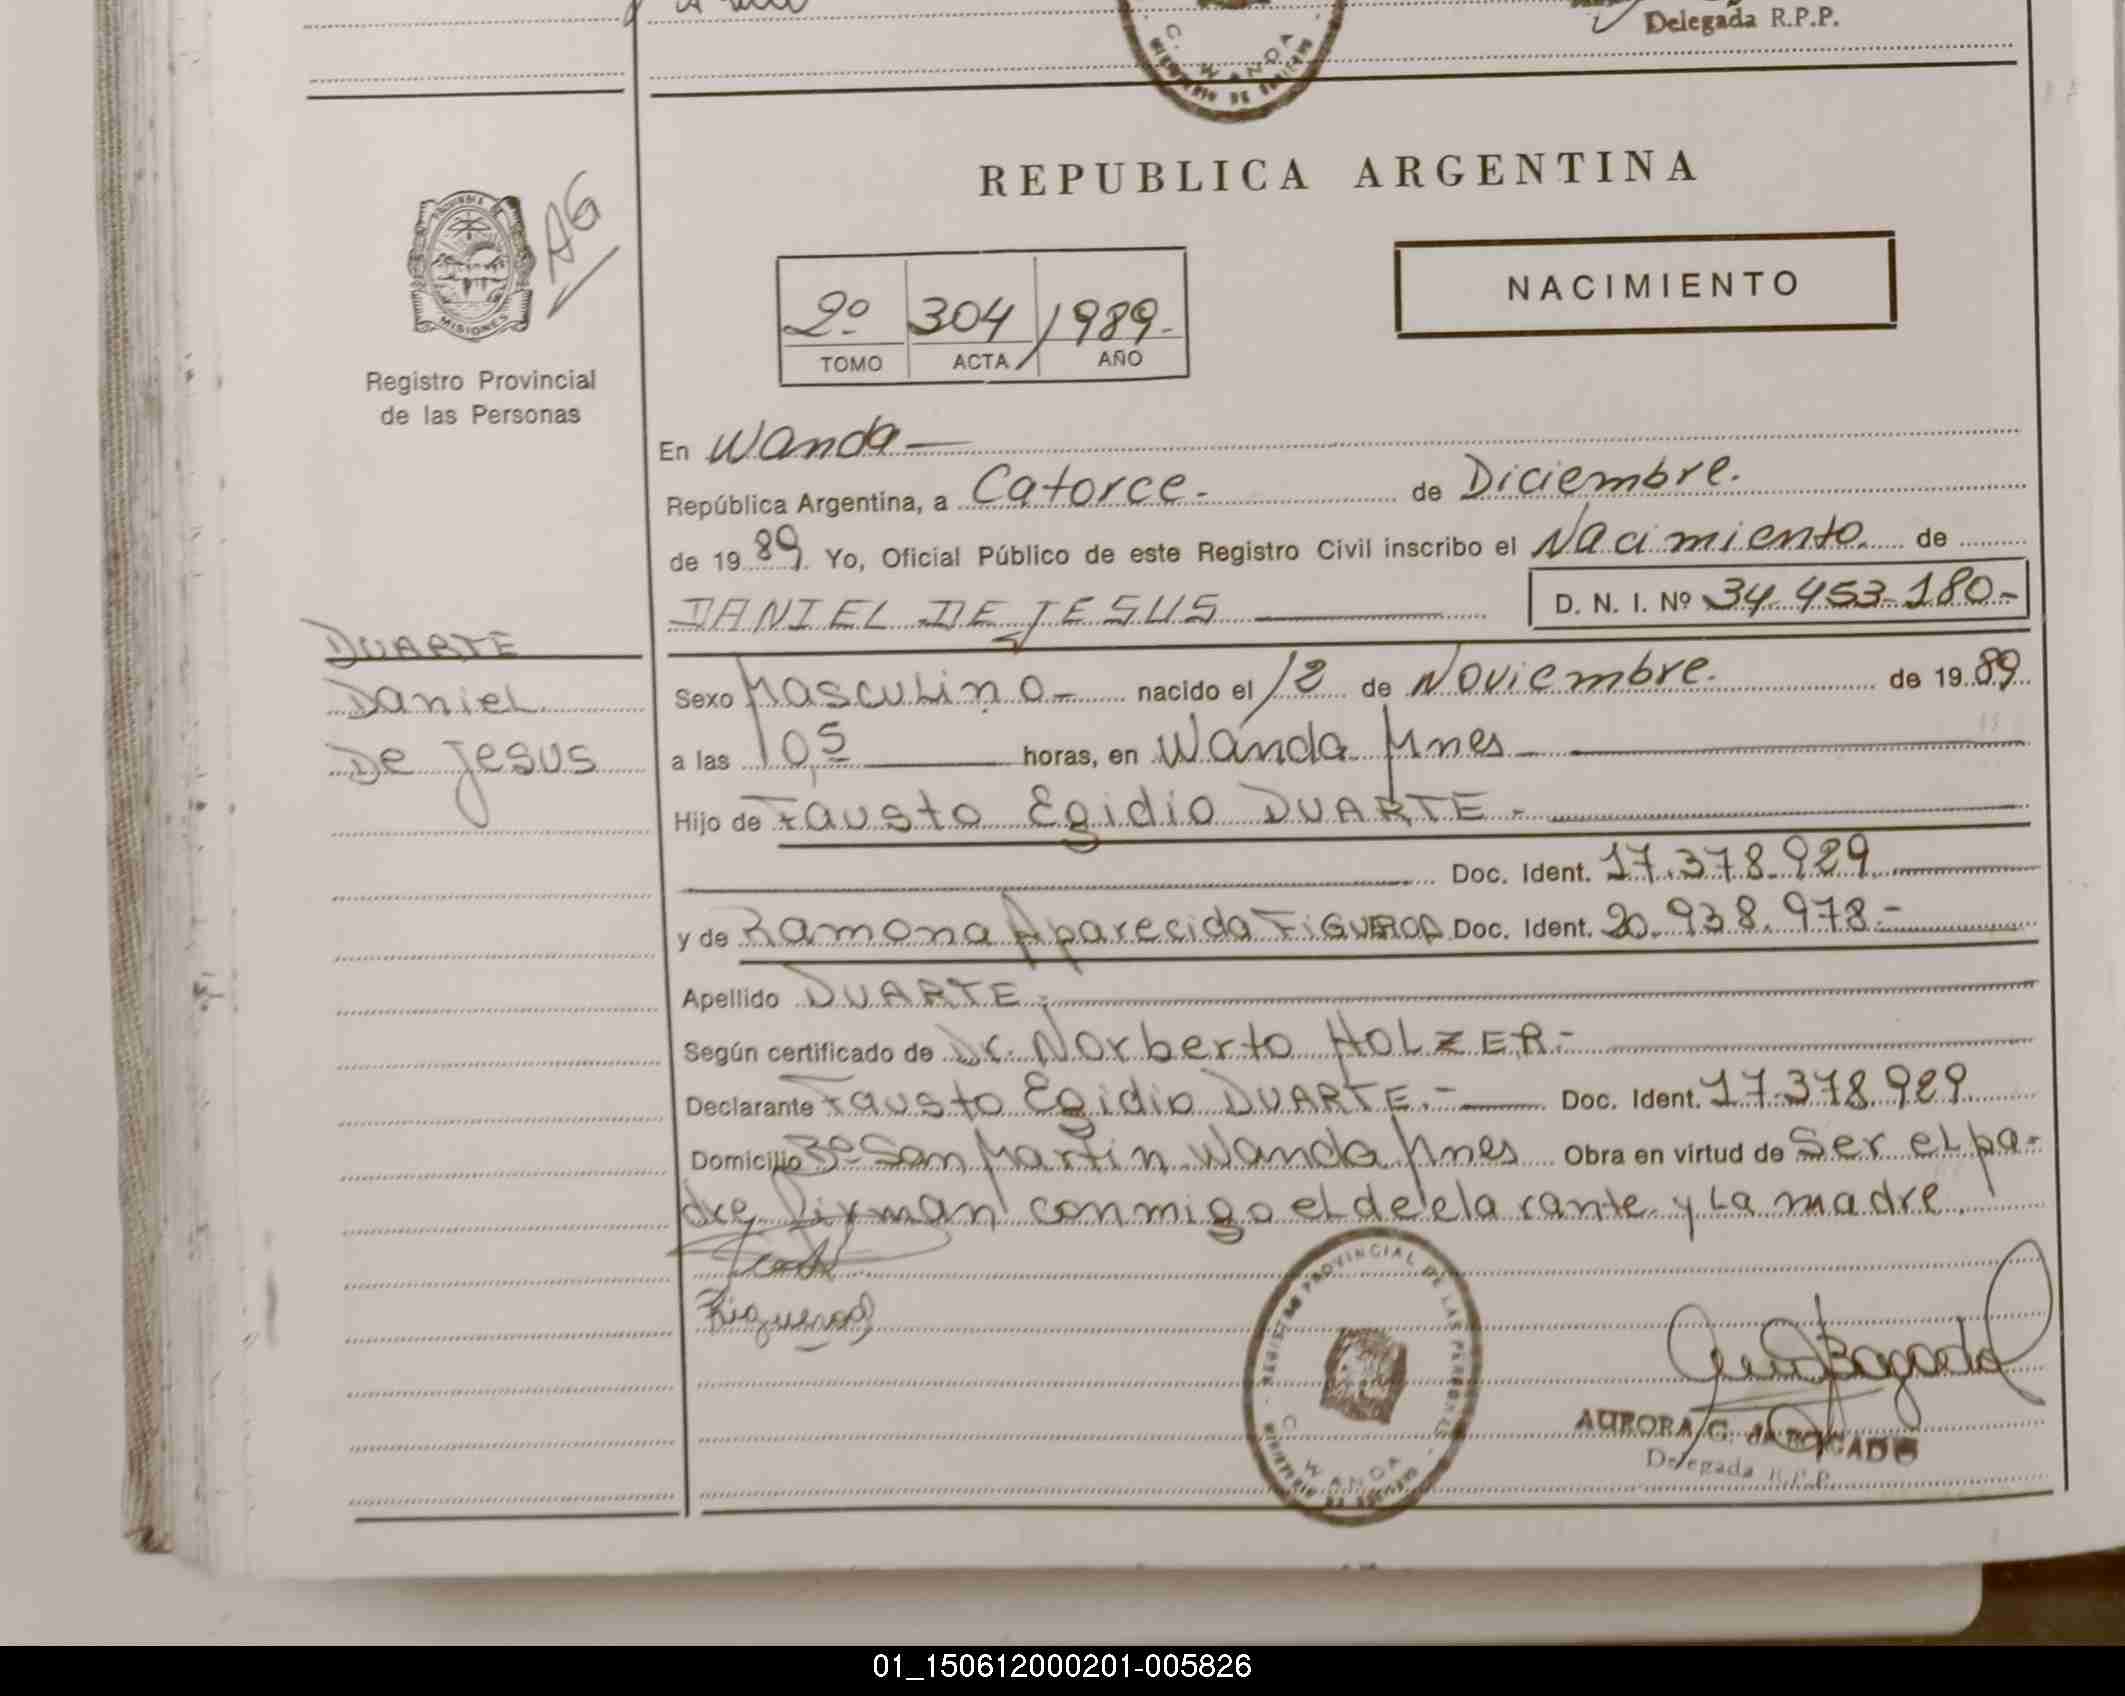 Delegada R.P.P.
C. WANDA
REPUBLICA ARGENTINA
MISIONES
AG
Registro Provincial
de las Personas
2º 304 1989-
TOMO ACTA AÑO
NACIMIENTO
En Wanda
República Argentina, a Catorce.- de Diciembre.
de 1989. Yo, Oficial Público de este Registro Civil inscribo el Nacimiento. de
DANIEL DE JESUS D. N. I. Nº 34-453-180-
DUARTE
Daniel
De Jesus
Sexo Masculino- nacido el 12 de Noviembre. de 19 89
a las 10,5 horas, en Wanda Mnes
Hijo de Fausto Egidio DUARTE.-
Doc. Ident. 17.378.929
y de Ramona Aparecida FIGUEROA Doc. Ident. 20.938.978.-
Apellido DUARTE.-
Según certificado de Dr. Norberto HOLZER.-
Declarante Fausto Egidio DUARTE.- Doc. Ident. 17.378.929
Domicilio Bº San Martin Wanda Mnes Obra en virtud de Ser el pa-
dre, Firman conmigo el declarante y La madre.
Figueroa
REGISTRO PROVINCIAL DE LAS PERSONAS
C. WANDA
AURORA G. de BOGADO
Delegada R.P.P.
01_150612000201-005826